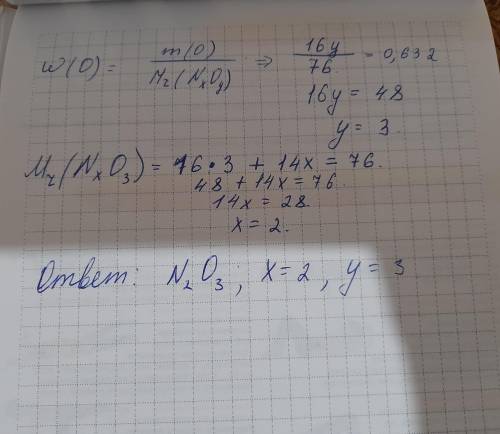 w(O) = m(O) / Mr(NxOy) ⇒ 16y / 76 = 0,632
16y = 48
y = 3.
Mr(NxO3) = 16·3 + 14x = 76.
48 + 14x = 76.
14x = 28
x = 2.
Ответ: N2O3; x = 2, y = 3